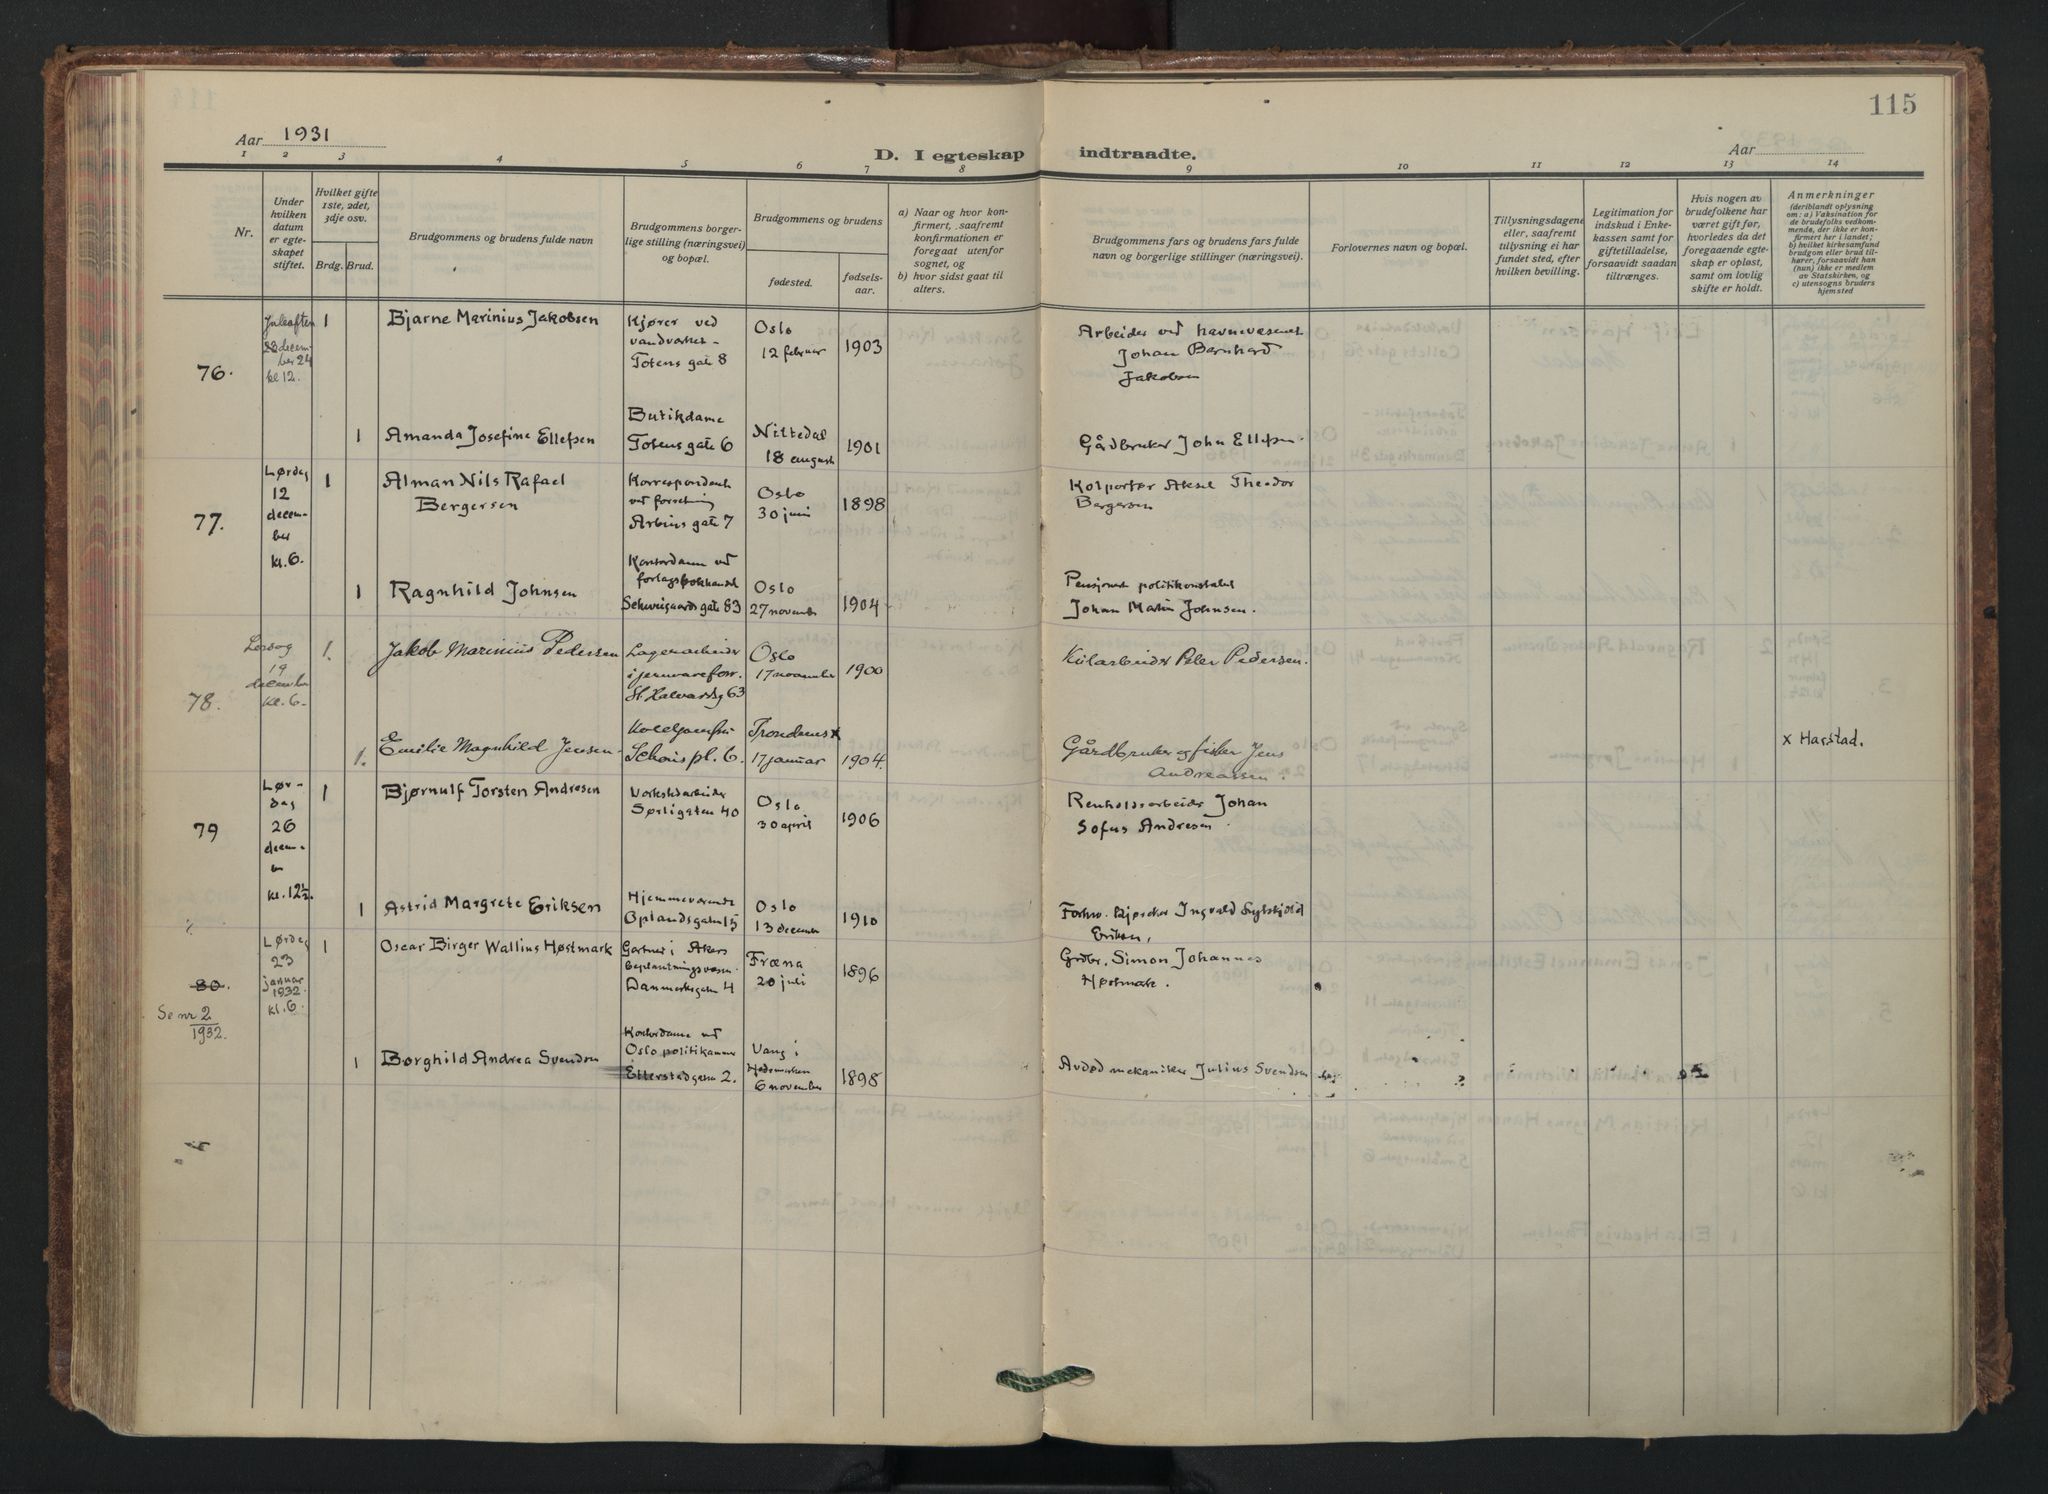 115
Aar 1931
D. I egteskap indtraadte.
Aar
1 2 3 4 5 6 7 8 9 10 11 12 13 14
Nr.
Under
hvilken
datum
er egte-
skapet
stiftet.
Hvilket gifte
1ste, 2det,
3dje osv.
Brdg. Brud.
Brudgommens og brudens fulde navn
Brudgommens borger-
lige stilling (næringsvei)
og bopæl.
Brudgommens og brudens
fødested.
fødsels-
aar.
a) Naar og hvor kon-
firmert, saafremt
konfirmationen er
foregaat utenfor
sognet, og
b) hvor sidst gaat til
alters.
Brudgommens fars og brudens fars fulde
navn og borgerlige stillinger (næringsvei).
Forlovernes navn og bopæl.
Tillysningsdagene
eller, saafremt
tillysning ei har
fundet sted, efter
hvilken bevilling.
Legitimation for
indskud i Enke-
kassen samt for
giftetilladelse,
forsaavidt saadan
tiltrænges.
Hvis nogen av
brudefolkene har
været gift før,
hvorledes da det
foregaaende egte-
skap er opløst,
samt om lovlig
skifte er holdt.
Anmerkninger
(deriblandt oplysning
om: a) Vaksination for
de brudefolks vedkom-
mende, der ikke er kon-
firmert her i landet;
b) hvilket kirkesamfund
brudgom eller brud til-
hører, forsaavidt han
(hun) ikke er medlem
av Statskirken, og
c) utensogns bruders
hjemsted
76.
Juleaften
decem-
ber 24
kl 12.
1
Bjarne Marinius Jakobsen
Kjører ved
vandverket -
Totens gate 8
Oslo
12 februar
1903
Arbeider ved havnevæsenet
Johan Bernhard
Jakobsen
1
Amanda Josefine Ellefsen
Butikdame
Totens gate 6
Nittedal
18 august
1901
Gårdbruker John Ellefsen.
77.
Lørdag
12
decem-
ber
kl. 6.
1
Alman Nils Rafael
Bergersen
Korrespondent
ved forretning
Arbins gate 7
Oslo
30 juni
1898
Kolportør Aksel Theodor
Bergersen
1
Ragnhild Johnsen
Kontordame ved
forlagsbokhandel
Schweigaards gate 83
Oslo
27 november
1904
Pensjonert politikonstabel
Johan Martin Johnsen.
78.
19
december
kl. 6.
1.
Jakob Marinius Pedersen
Lagerarbeider
i jernvareforr.
St. Halvardsg 63
Oslo
17 november
1900
Peter Pedersen.
1.
Emilie Magnhild Jensen
Schous pl. 6.
Trondenes x
17 januar
1904.
Gårdbruker og fisker Jens
Andreassen.
x Harstad.
79
Lør-
dag
26
decem-
kl. 12½.
1
Bjørnulf Torsten Andresen
Verkstedarbeider
Sørligaten 40
Oslo
30 april
1906
Renholdsarbeider Johan
Sofus Andresen.
1
Astrid Margrete Eriksen
Hjemmeværende
Oplandsgaten 15
Oslo
13 december
1910
Ingvald
Eriksen.
80.
Se nr 2
1932.
Lørdag
23
januar
1932.
kl. 6
1
Oscar Birger Wallius Høstmark
Gartner i Akers
beplantningsvæsen.
Danmarksgaten 4
Fræna
20 juli
1896
Grdbr. Simon Johannes
Høstmark.
1
Børghild Andrea Svendsen
Kontordame ved
Oslo politikammer
Etterstadgaten 2.
Vang i
Hedemarken
6 november
1898
Avdød mekaniker Julius Svendsen